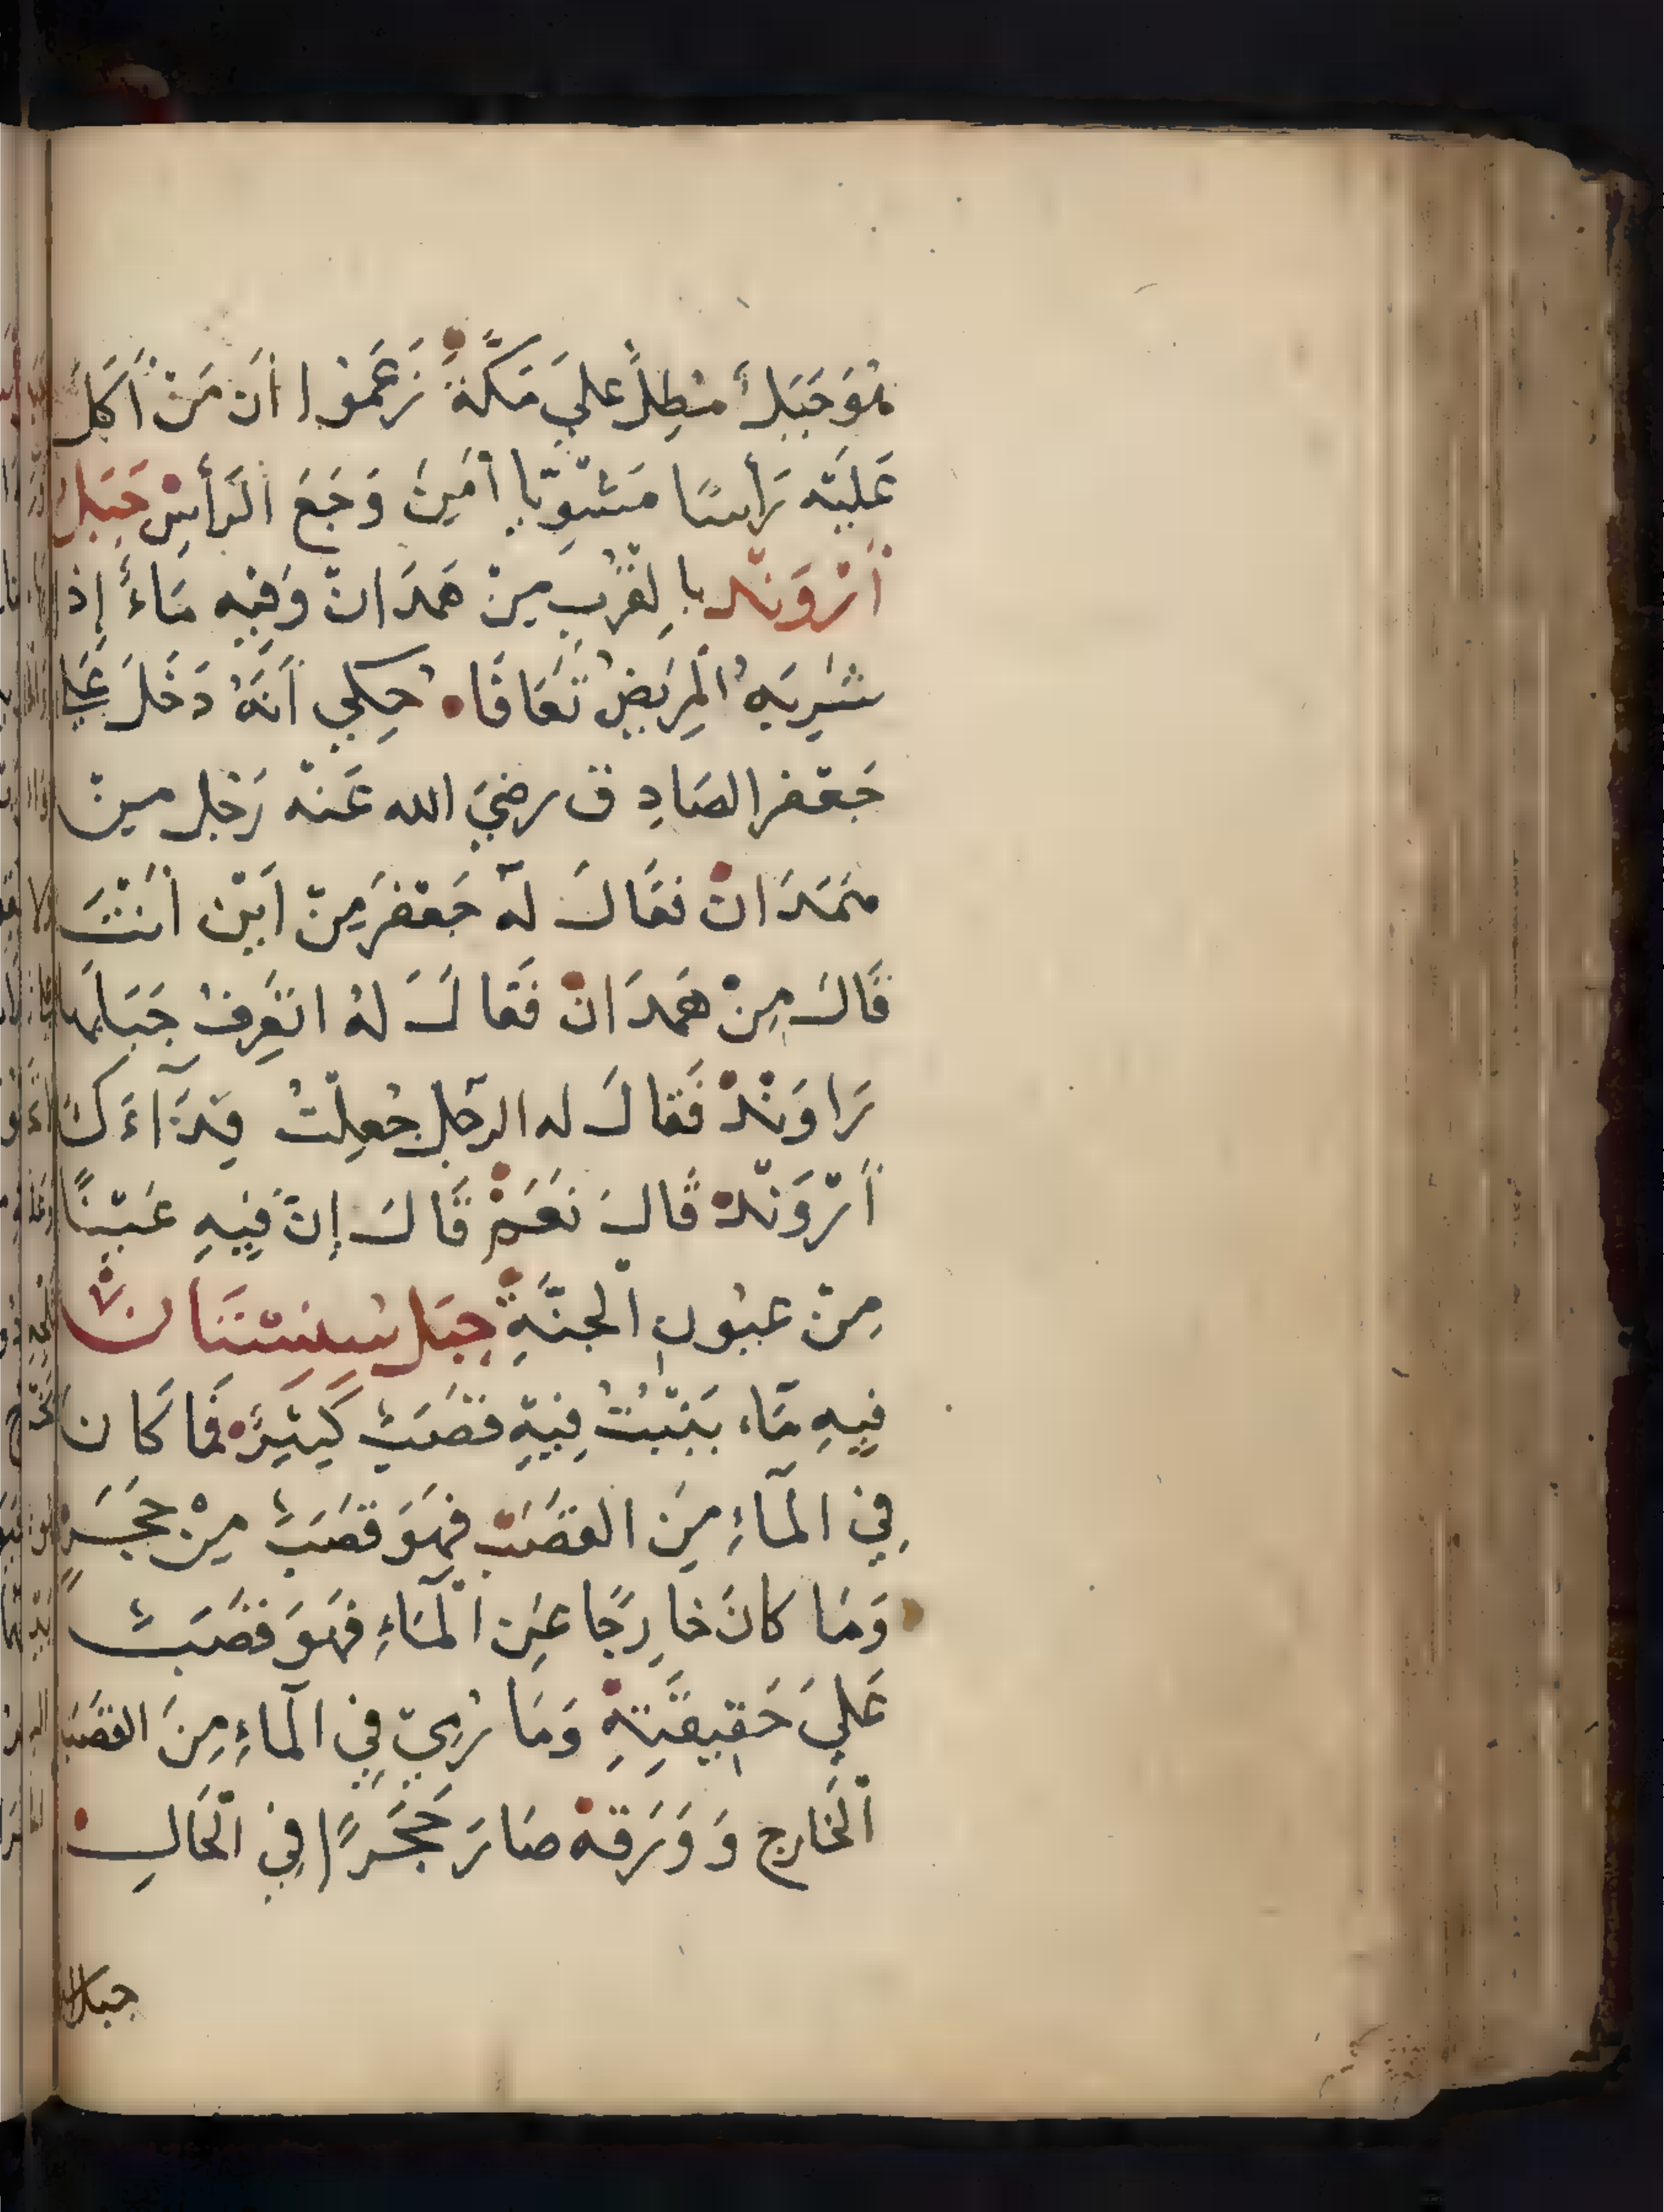 هُوَ جَبَلٌ مُطِلٌّ عَلَي مَكَّةَ زَعَمُوا أَنَّ مَنْ أَكَلَ
عَلَيْهِ رَأْسًا مَشْوِيًّا أَمِنَ وَجَعَ الرَّأْسِ جَبَلُ
أَرْوَنْد بِالقُرْبِ مِنْ هَمَدَانْ وَفِيهِ مَاءٌ إِذَا
شَرِبَهُ الْمَرِيضُ تَعَافَا حُكِي أَنَّهُ دَخَلَ عَلَي
جَعْفَر الصَادِق رضِيَ الله عَنْهُ رَجُل مِنْ
هَمَدَانْ فَقَالَ لَهُ جَعْفَرَ مِنْ أَيْنَ أَنْتَ
قَالَ مِنْ هَمَدَانْ فَقَالَ لَهُ اتَعْرِفُ جَبَلَهَا
رَاوَنْدْ فَقَالَ له الرجُل جُعِلْتُ فِدَآءَكَ
أَرْوَنْدْ قَالَ نَعَمْ قَالَ إِنَّ فِيهِ عَيْنًا
مِنْ عُيُونِ الْجَنَّةِ جَبَل
فِيهِ مَاء يَنْبُتُ فِيهِ قَصَبٌ كَثِيرٌ فَمَا كَانَ
فِي الْمَاءِ مِنَ القَصَبْ فَهُوَ قَصَبٌ مِنْ حَجَرٍ
وَمَا كَانَ خَارِجًا عَنِ الْمَاءِ فَهُوَ قَصَبٌ
عَلَي حَقِيقَتِهِ وَمَا رُمِيَ فِي الْمَاءِ مِنَ القَصَبِ
الْخَارج وَوَرَقهُ صَارَ حَجَرًا فِي الْحَالِ
جبل